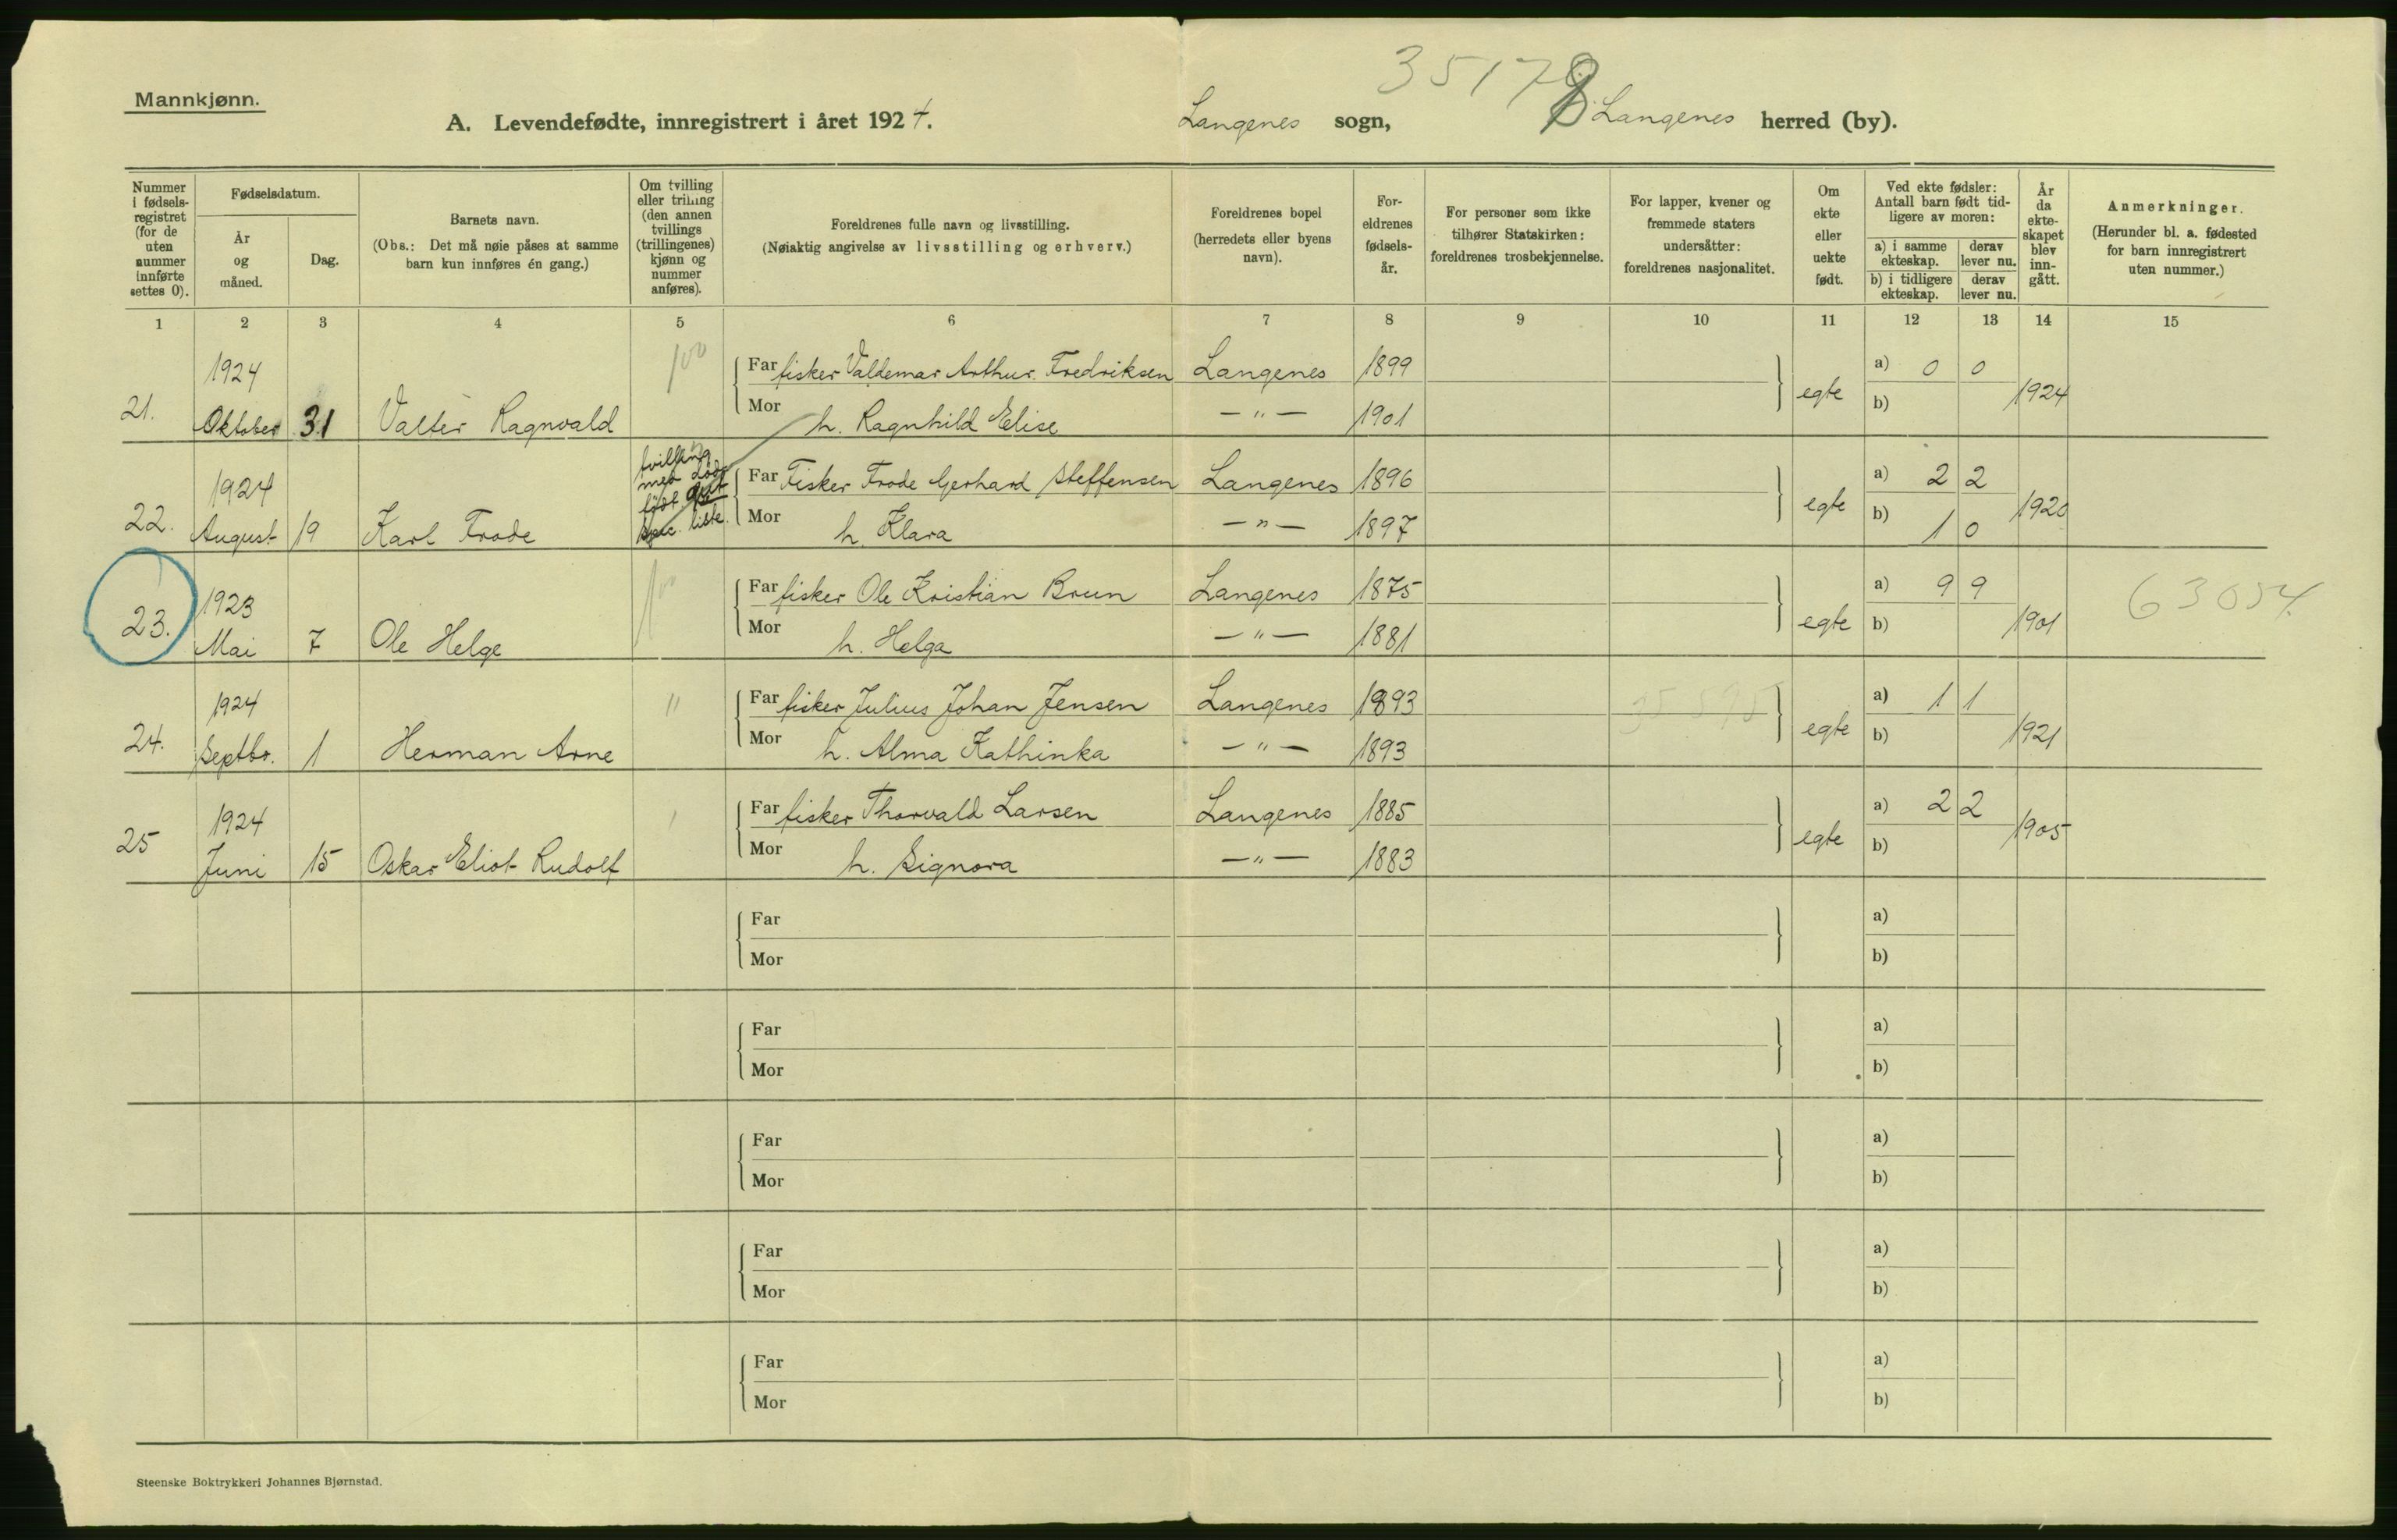 35178
Mannkjønn.
A. Levendefødte, innregistrert i året 1924. Langenes sogn, Langenes herred (by).
Nummer i fødselsregistret (for de uten nummer innførte settes 0).
Fødselsdatum.
År og måned.
Dag.
Barnets navn.
(Obs.: Det må nøie påses at samme barn kun innføres én gang.)
Om tvilling eller trilling (den annen tvillings (trillingenes) kjønn og nummer anføres).
Foreldrenes fulle navn og livsstilling.
(Nøiaktig angivelse av livsstilling og erhverv.)
Foreldrenes bopel (herredets eller byens navn).
Foreldrenes fødselsår.
For personer som ikke tilhører Statskirken: foreldrenes trosbekjennelse.
For lapper, kvener og fremmede staters undersåtter: foreldrenes nasjonalitet.
Om ekte eller uekte født.
Ved ekte fødsler: Antall barn født tidligere av moren:
a) i samme ekteskap. derav lever nu.
b) i tidligere ekteskap. derav lever nu.
År da ekteskapet blev inngått.
Anmerkninger.
(Herunder bl. a. fødested for barn innregistrert uten nummer.)
1 2 3 4 5 6 7 8 9 10 11 12 13 14 15
1924 100 Far fisker Valdemar Arthur Fredriksen Langenes 1899 a) 0 0
21. Oktober 31 Valter Ragnvald Mor h. Ragnhild Elise — " — 1901 egte b) 1924
1924 tvilling med død født Far Fisker Frode Gerhard Steffensen Langenes 1896 a) 2 2
22. August 19 Karl Frode liste. Mor h. Klara — " — 1897 egte b) 1 0 1920
1923 Far fisker Ole Kristian Brun Langenes 1875 a) 9 9 63054
23. Mai 7 Ole Helge Mor h. Helga — " — 1881 egte b) 1901
1924 " Far fisker Julius Johan Jensen Langenes 1893 35595 a) 1 1
24. Septbr. 1 Herman Arne Mor h. Alma Kathinka — " — 1893 egte b) 1921
1924 Far fisker Thorvald Larsen Langenes 1885 a) 2 2
25 Juni 15 Oskar Eliot Rudolf Mor h. Signora — " — 1883 egte b) 1905
Far a)
Mor b)
Far a)
Mor b)
Far a)
Mor b)
Far a)
Mor b)
Far a)
Mor b)
Steenske Boktrykkeri Johannes Bjørnstad.